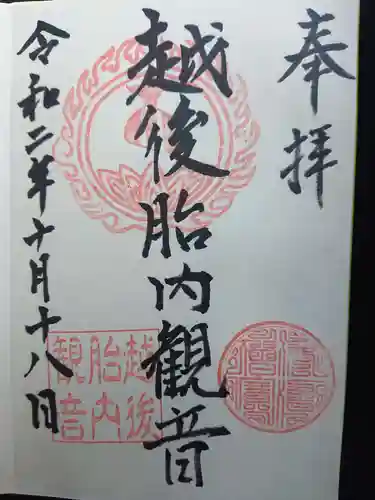 奉拝
越後胎内観音
令和二年十月十八日
越後
胎内
観音